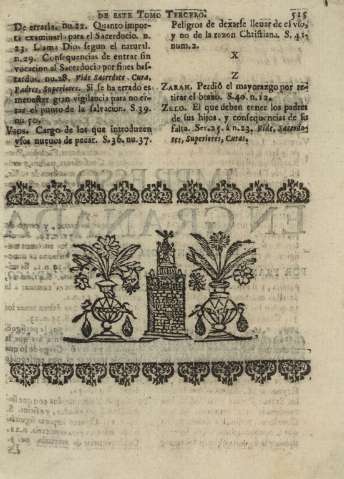 DE ESTE TOMO TERCERO. 515
De errarla. nu.22. Quanto impor-
ta examinarla para el Sacerdocio. n.
23. Llama Dios segun el natural.
n.29. Consequencias de entrar sin
vocacion al Sacerdocio por fines bas-
tardos. nu.28. Vide Sacerdote. Cura,
Padres, Superiores. Si se ha errado es
menester gran vigilancia para no er-
rar el punto de la salvacion. S.39.
nu.50.
Usos. Cargo de los que introducen
usos nuevos de pecar. S.36. nu.37.
Peligros de dexarse llevar de el uso,
y no de la razon Christiana. S. 41.
num.2.
X
Z
ZARAH. Perdió el mayorazgo por re-
tirar el brazo. S.40. n.12.
ZELO. El que deben tener los padres
de sus hijos, y consequencias de su
falta. Ser.25. à n.23. Vide, Sacerdo-
tes, Superiores, Curas.